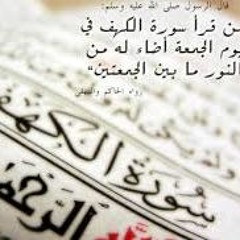 قال الرسول صلى الله عليه وسلم:
من قرأ سورة الكهف في
يوم الجمعة أضاء له من
النور ما بين الجمعتين"
رواه الحاكم والبيهقي
سورة الكهف